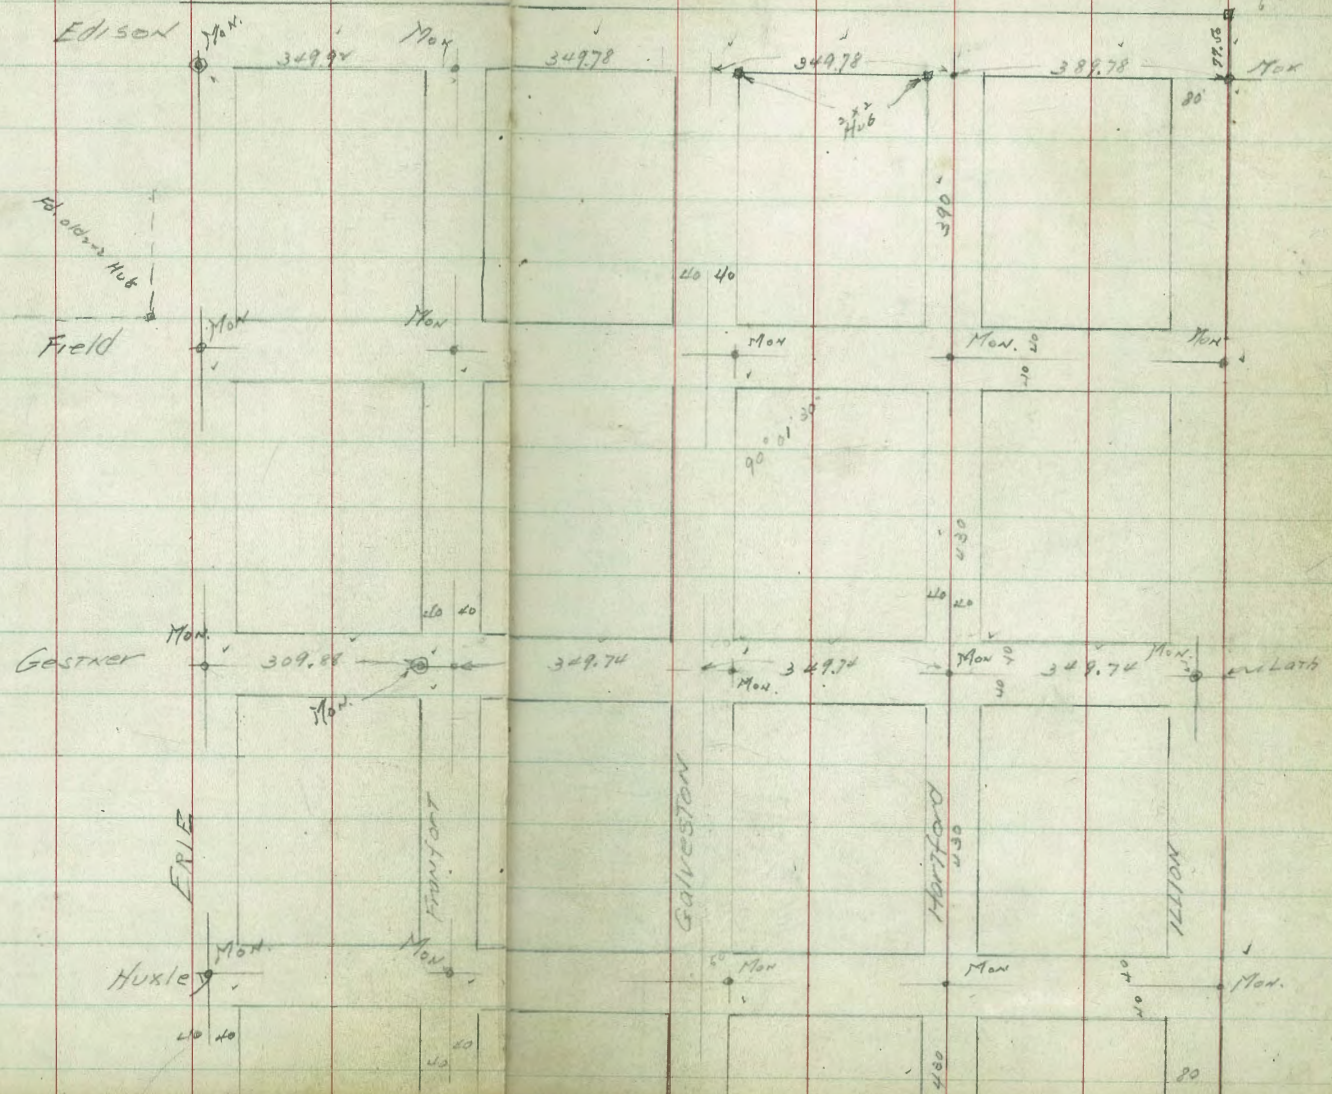 EDISON
MON.
349.92
MON
349.78
349.78
2x2
HUB
389.78
80'
MON
Fd. old 2x2 HUB
390
40 40
Field
MON
MON
MON
MON.
40
40
MON
90° 01' 30"
430
40 40
40 40
Gestner
MON.
309.88
MON.
349.74
349.74
MON.
MON
40
40
349.74
MON.
Lath
ERIE
Frankfort
Galveston
Hartford
430
ILLION
Huxley
MON.
MON
MON
MON
40
40
MON.
40 40
40
40
430
80